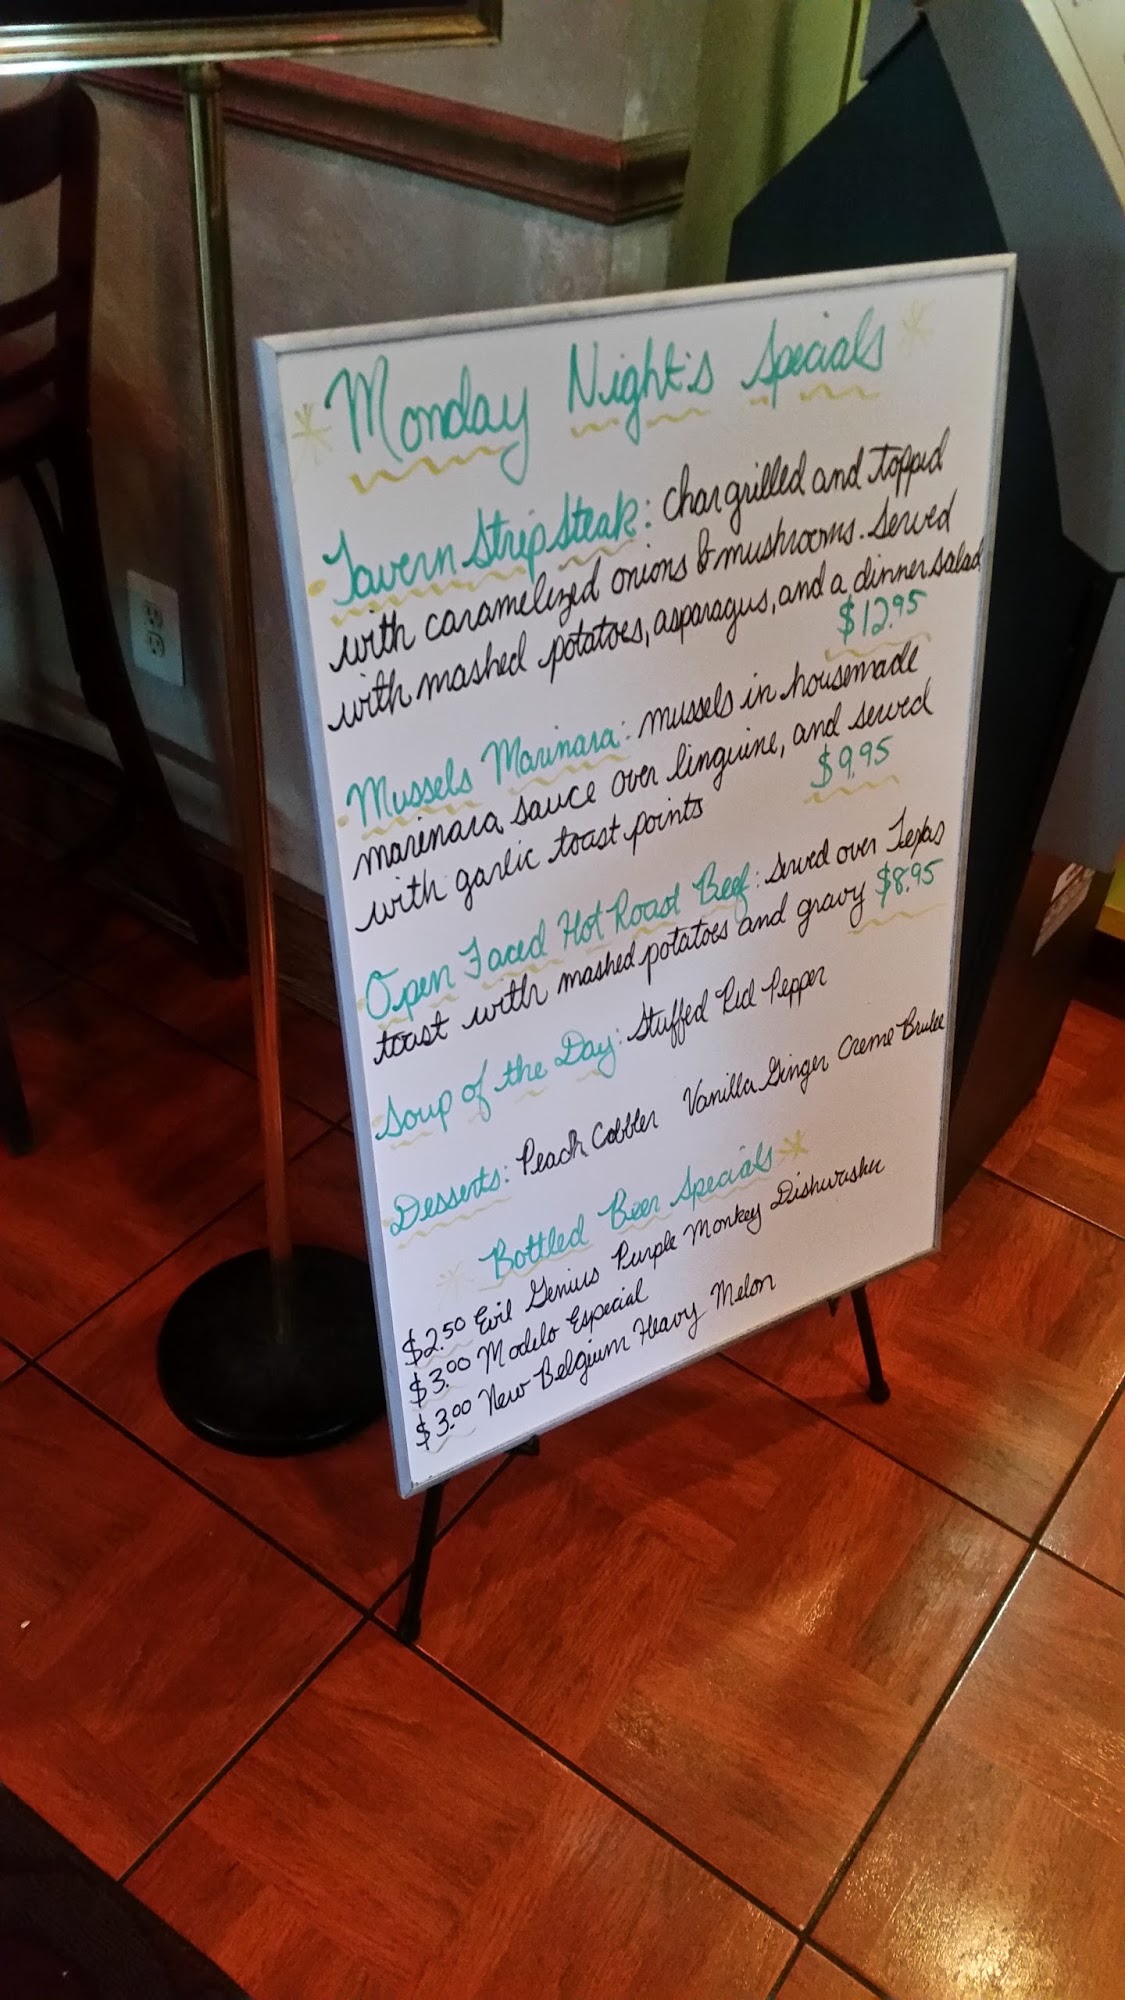 Monday Night's Specials
Tavern Strip Steak: Chargrilled and topped
with caramelized onions & mushrooms. Served
with mashed potatoes, asparagus, and a dinner salad
$12.95
Mussels Marinara: mussels in housemade
marinara sauce over linguine, and served
with garlic toast points $9.95
Open Faced Hot Roast Beef: Served over Texas
toast with mashed potatoes and gravy $8.95
Soup of the Day: Stuffed Red Pepper
Desserts: Peach Cobbler Vanilla Ginger Creme Brulee
Bottled Beer Specials
$2.50 Evil Genius Purple Monkey Dishwasher
$3.00 Modelo Especial
$3.00 New Belgium Heavy Melon